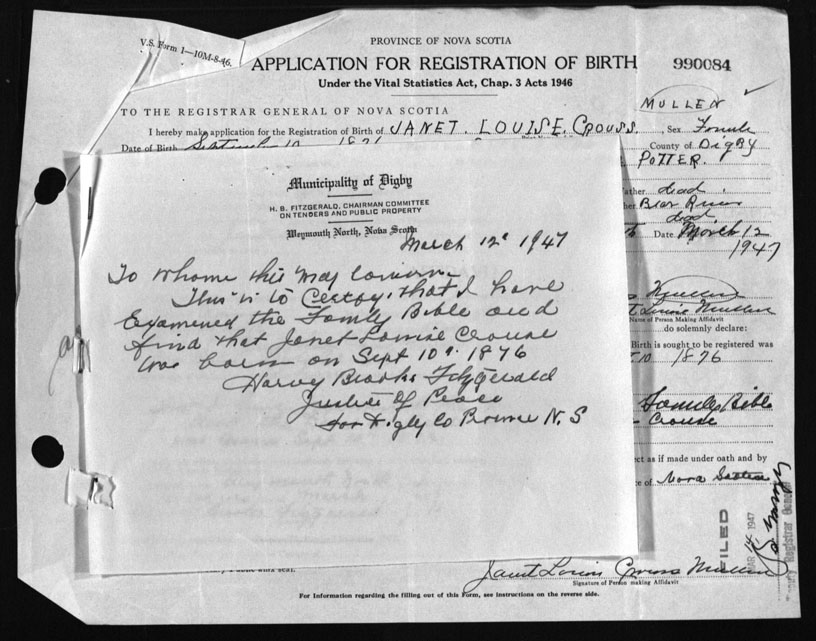 PROVINCE OF NOVA SCOTIA
V.S. Form 1—10M-8-46.
APPLICATION FOR REGISTRATION OF BIRTH 990084
Under the Vital Statistics Act, Chap. 3 Acts 1946
TO THE REGISTRAR GENERAL OF NOVA SCOTIA MULLEN
I hereby make application for the Registration of Birth of JANET. LOUISE. CROUSS. Sex Female
Date of Birth September 10 1876 County of Digby
POTTER.
Father dead.
Bear River
dead
Date March 12
1947
Municipality of Digby
H. B. FITZGERALD, CHAIRMAN COMMITTEE
ON TENDERS AND PUBLIC PROPERTY
Weymouth North, Nova Scotia
March 12 1947
To Whome this May Concern
This is to Certfy, that I have
Examined the Family Bible and
find that Janet Louise Crouse
was born on Sept 10 1876
Harvy Brooks Fitzgerald
Justice of Peace
for Digby Co Provnce N.S
Mullen
Louise Mullen
Name of Person Making Affidavit
do solemnly declare:
Birth is sought to be registered was
10 1876
Family Bible
Crouse
ect as if made under oath and by
of Nova Scotia
FILED
MAR 14 1947
Registrar General
Janet Louise Crouss Mullen
Signature of Person making Affidavit
For Information regarding the filling out of this Form, see instructions on the reverse side.